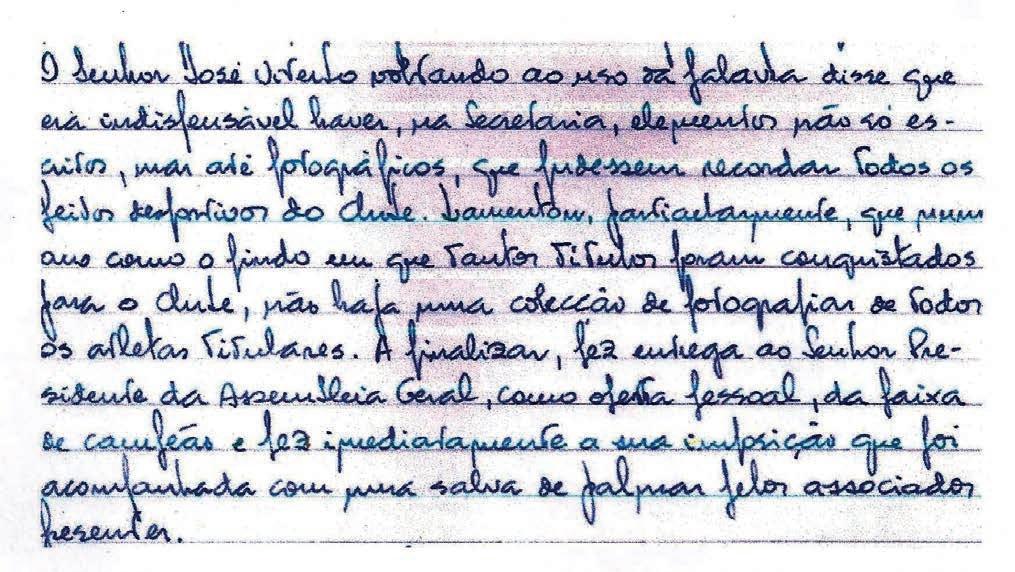 O Senhor José Vicente voltando ao uso da palavra disse que
era indispensável haver, na Secretaria, elementos não só es-
critos, mas até fotográficos, que pudessem recordar todos os
feitos desportivos do Clube. Lamentou, particularmente, que num
ano como o findo em que tantos títulos foram conquistados
para o Clube, não haja uma colecção de fotografias de todos
os atletas titulares. A finalizar, fez entrega ao Senhor Pre-
sidente da Assembleia Geral, como oferta pessoal, da faixa
de campeão e fez imediatamente a sua imposição que foi
acompanhada com uma salva de palmas pelos associados
presentes.